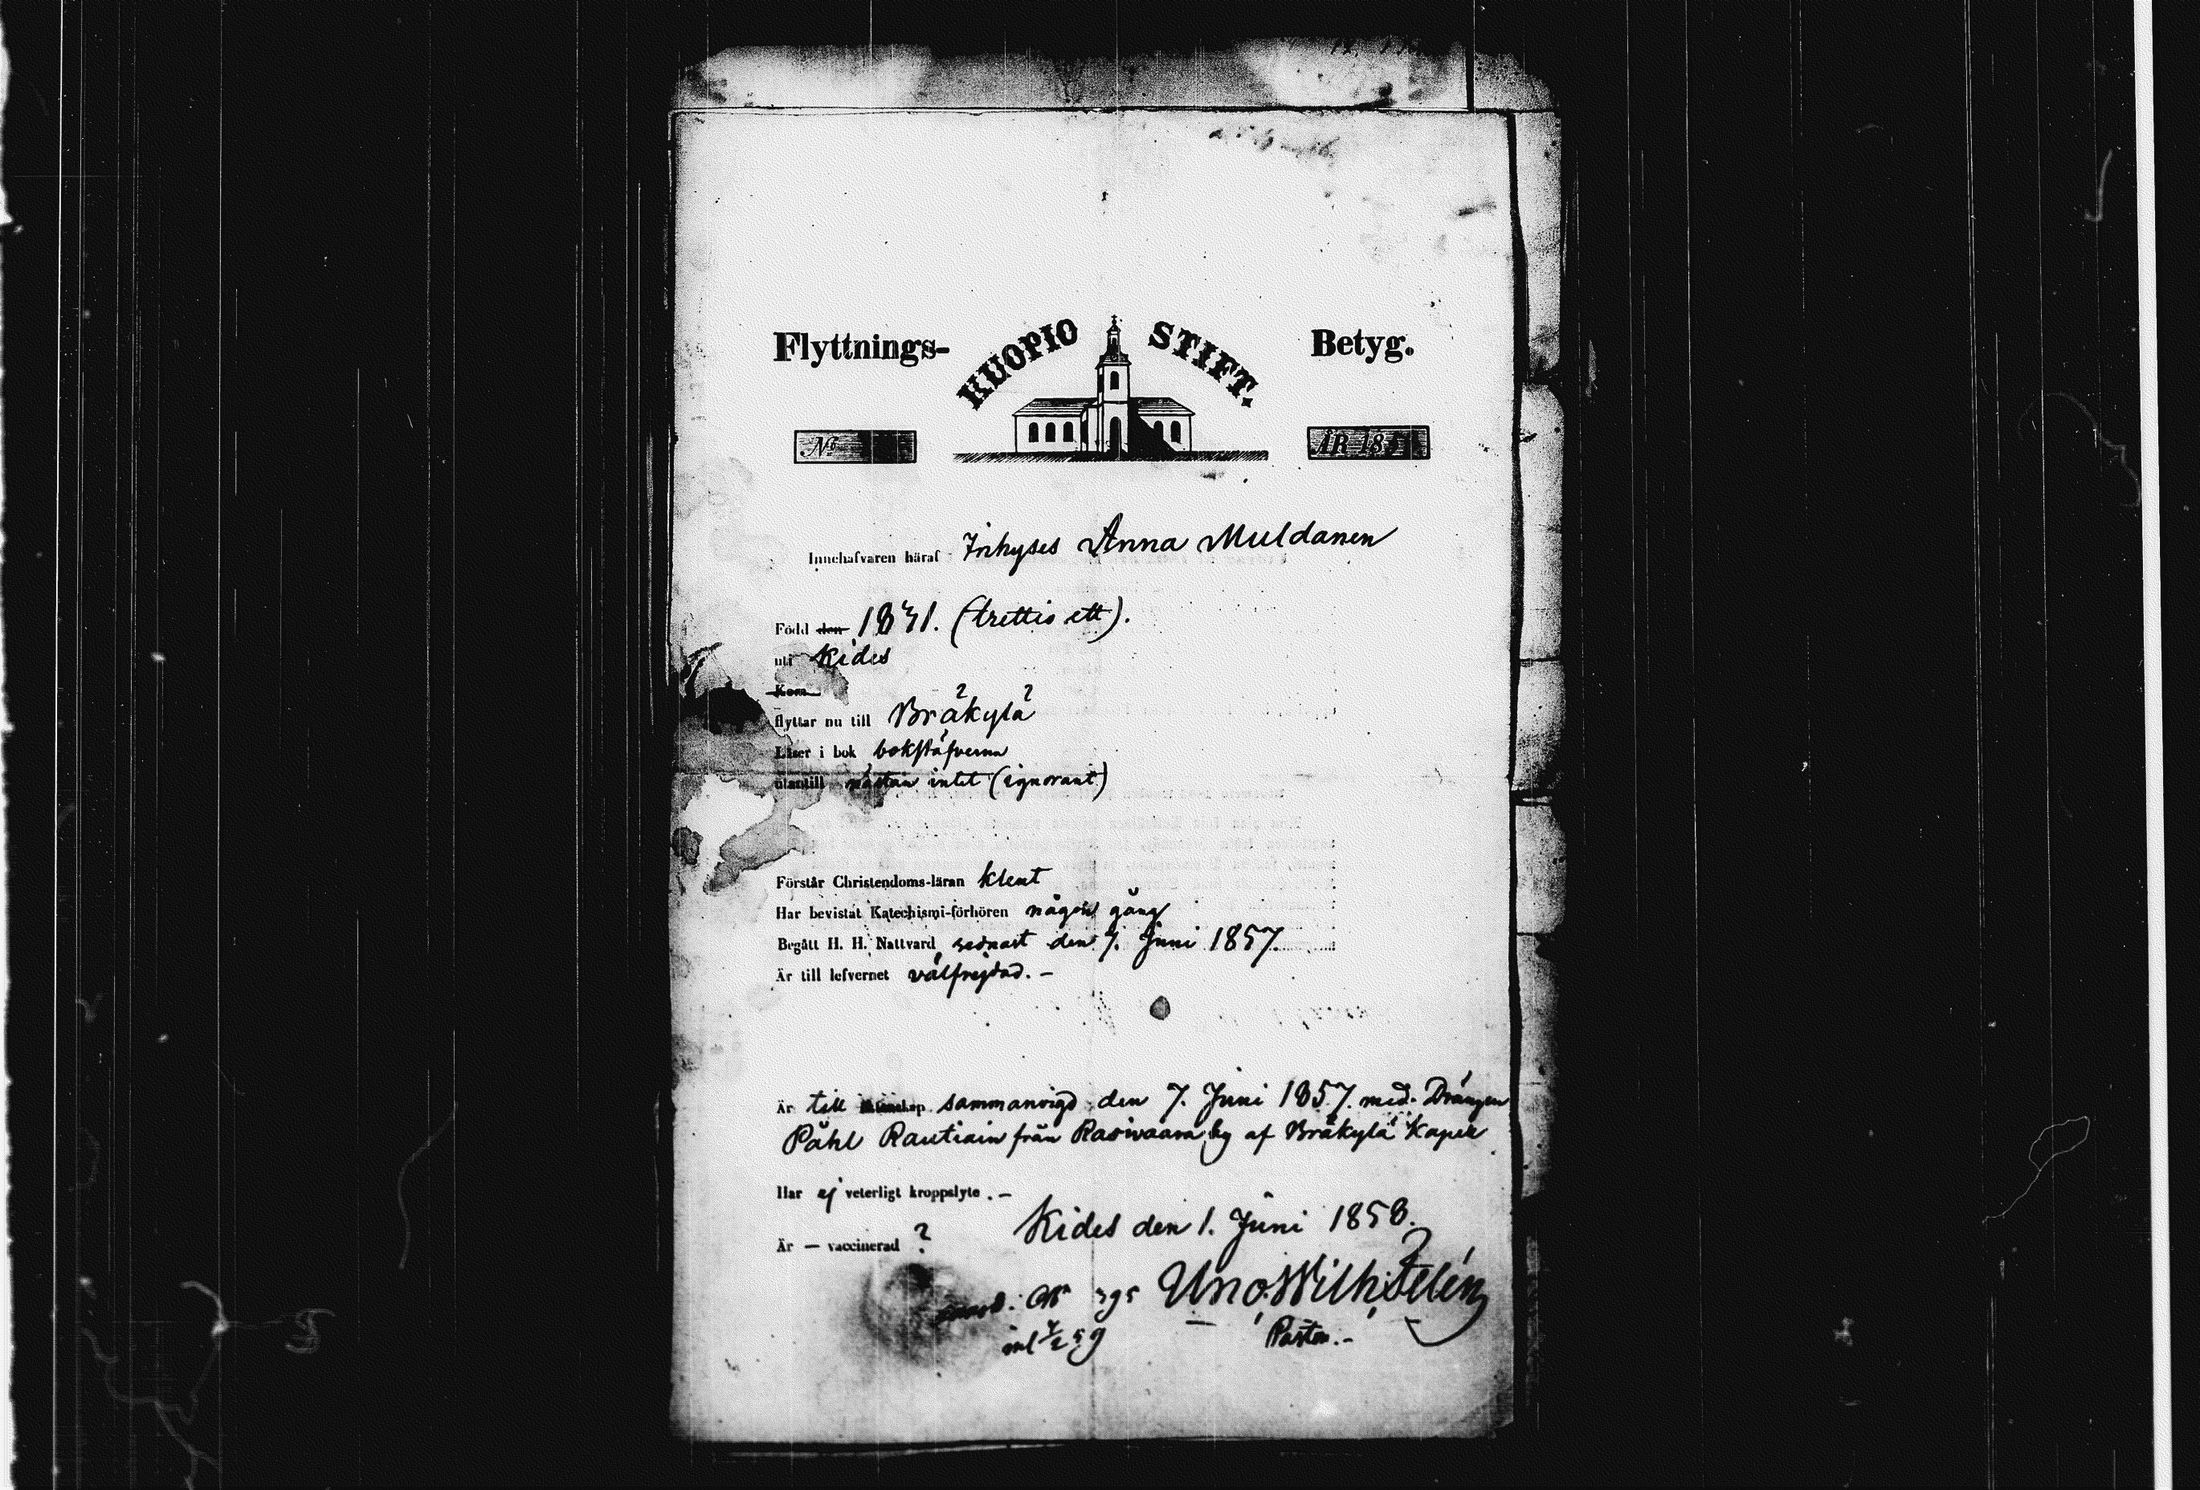 Flyttnings- KUOPIO STIFT. Betyg.
No ÅR 185
Innehafvaren häraf Inhyses Anna Muldanen
Född den 1831. (trettio ett).
uti Kides
Kom
flyttar nu till Bräkylä
Läser i bok bokstäfverna
utantill nästan intet (ignorant)
Förstår Christendoms-läran klent
Har bevistat Katechismi-förhören någon gång
Begått H. H. Nattvard sednast den 7. Juni 1857.
Är till lefvernet välfrejdad. –
Är till äktenskap sammanvigd den 7. Juni 1857. med Drängen
Påhl Rautiain från Rasivaara by af Bräkylä Kapell
Har ej veterligt kroppslyte. –
Är – vaccinerad ?
Kides den 1. Juni 1858.
Uno Wilh.
inl 59
Pastor. –